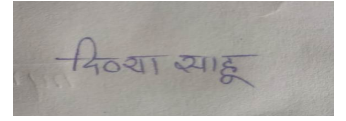 दिव्या साहू